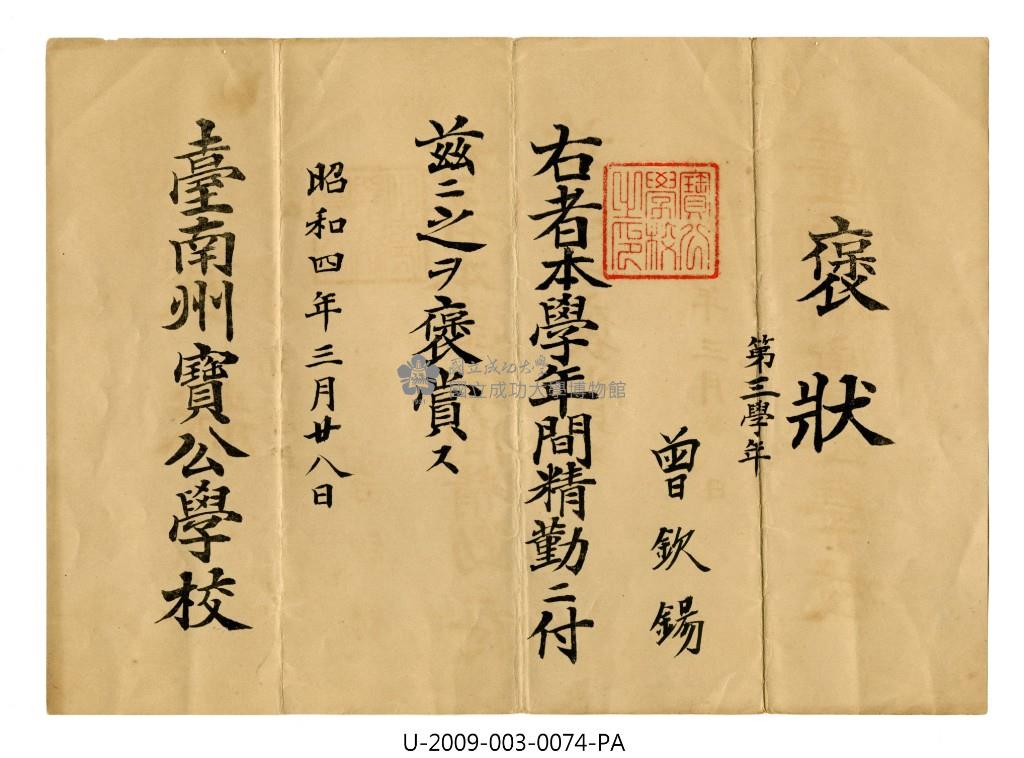 褒狀
第三學年
曾欽錫
寶公
學校
之印
右者本學年間精勤ニ付
茲ニ之ヲ褒賞ス
昭和四年三月廿八日
臺南州寶公學校
國立成功大學
國立成功大學博物館
U-2009-003-0074-PA